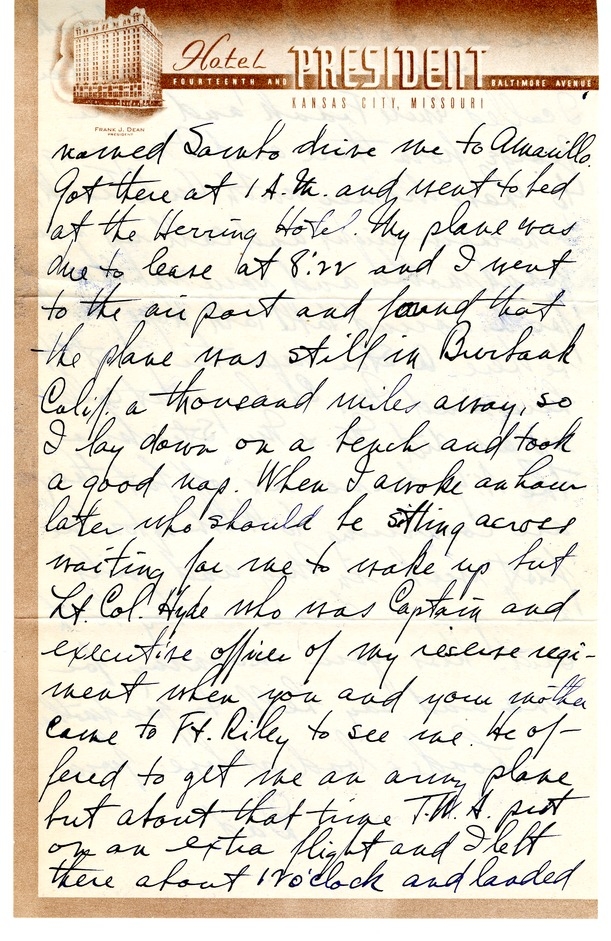 Hotel PRESIDENT
FOURTEENTH AND BALTIMORE AVENUE
KANSAS CITY, MISSOURI
FRANK J. DEAN
PRESIDENT
named Sambo drive me to Amarillo.
Got there at 1 A.M. and went to bed
at the Herring Hotel. My plane was
due to leave at 8:22 and I went
to the airport and found that
the plane was still in Burbank
Calif. a thousand miles away, so
I lay down on a bench and took
a good nap. When I awoke an hour
later who should be sitting across
waiting for me to wake up but
Lt. Col. Hyde who was Captain and
executive officer of my reserve regi-
ment when you and your mother
came to Ft. Riley to see me. He of-
fered to get me an army plane
but about that time T.W.A. put
on an extra flight and I left
there about 12 o'clock and landed